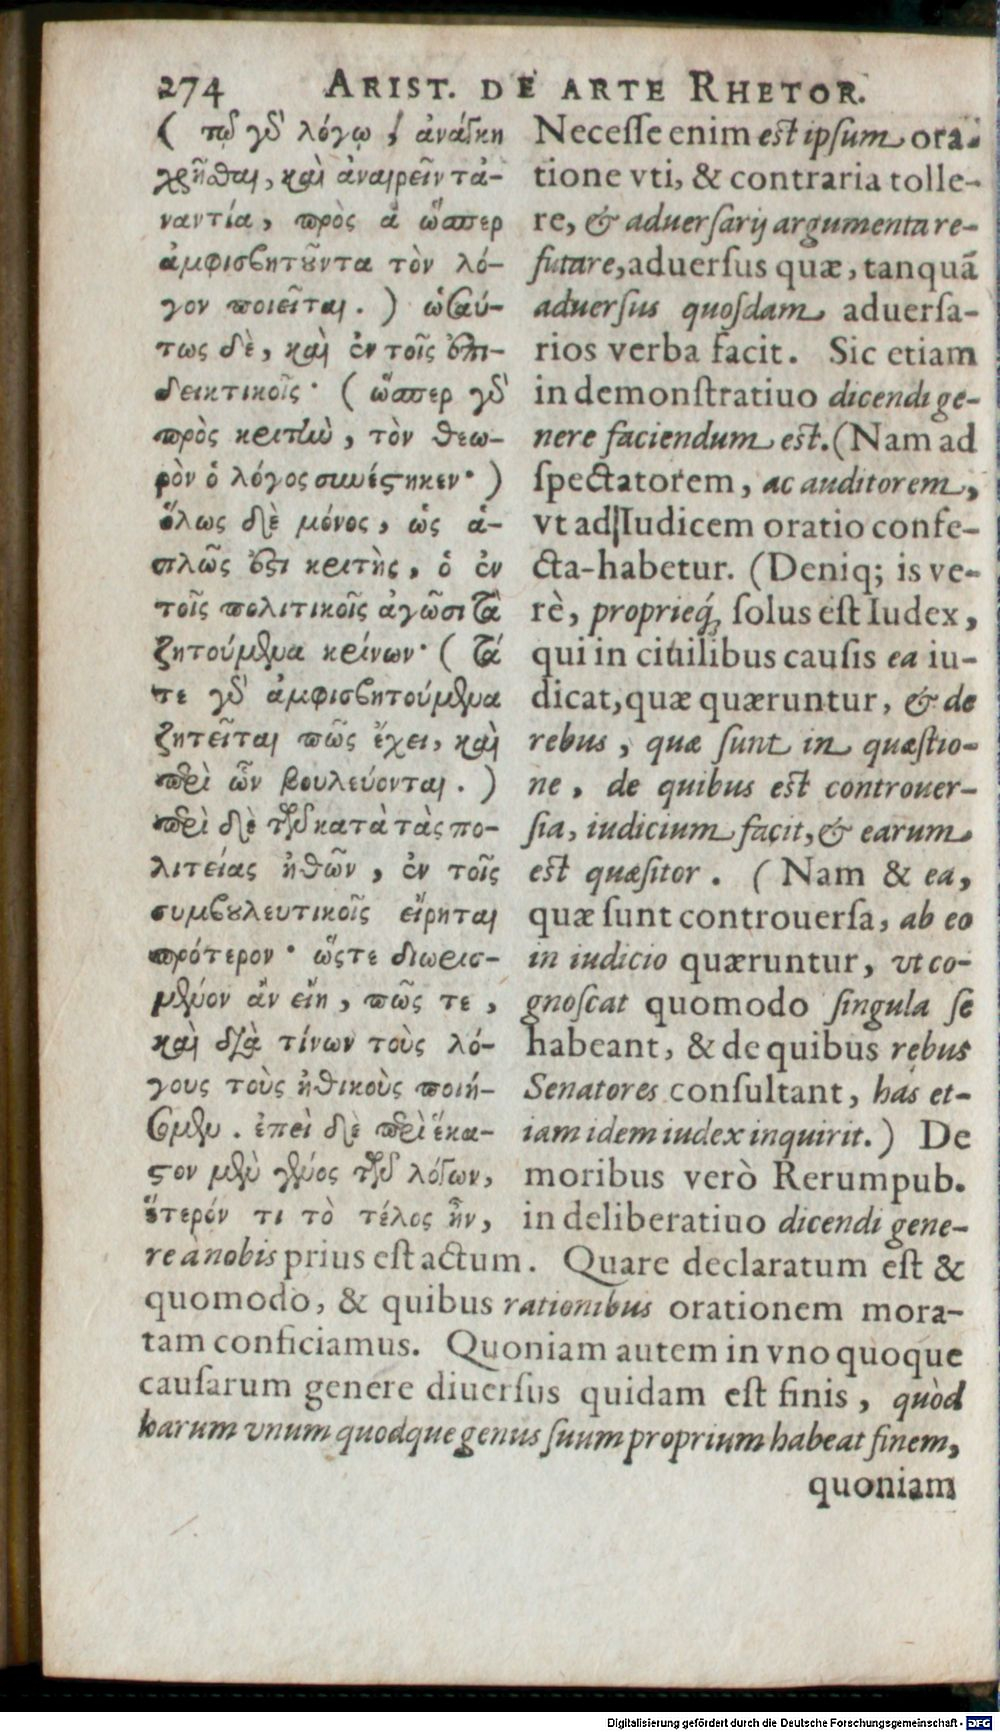 274 ARIST. DE ARTE RHETOR.
( τῷ γὰρ λόγῳ , ἀνάγκη
χρῆσθαι, καὶ ἀναιρεῖν τἀ-
ναντία, πρὸς ἃ ὥσπερ
ἀμφισβητοῦντα τὸν λό-
γον ποιεῖται. ) ὡσαύ-
τως δὲ, καὶ ἐν τοῖς ἐπι-
δεικτικοῖς· ( ὥσπερ γὰρ
πρὸς κριτὴν, τὸν θεω-
ρὸν ὁ λόγος συνέστηκεν· )
ὅλως δὲ μόνος, ὡς ἁ-
πλῶς ἐστι κριτὴς, ὁ ἐν
τοῖς πολιτικοῖς ἀγῶσι τὰ
ζητούμενα κρίνων· ( τά
τε γὰρ ἀμφισβητούμενα
ζητεῖται πῶς ἔχει, καὶ
περὶ ὧν βουλεύονται. )
περὶ δὲ τῶν κατὰ τὰς πο-
λιτείας ἠθῶν, ἐν τοῖς
συμβουλευτικοῖς εἴρηται
πρότερον· ὥστε διωρισ-
μένον ἂν εἴη, πῶς τε,
καὶ διὰ τίνων τοὺς λό-
γους τοὺς ἠθικοὺς ποιή-
σομεν. ἐπεὶ δὲ περὶ ἕκα-
στον μὲν γένος τῶν λόγων,
ἕτερόν τι τὸ τέλος ἦν,
Necesse enim est ipsum ora-
tione vti, & contraria tolle-
re, & aduersarij argumenta re-
futare, aduersus quæ, tanquā
aduersus quosdam aduersa-
rios verba facit. Sic etiam
in demonstratiuo dicendi ge-
nere faciendum est. (Nam ad
spectatorem, ac auditorem,
vt ad Iudicem oratio confe-
cta-habetur. (Deniq; is ve-
rè, proprieq́; solus est Iudex,
qui in ciuilibus causis ea iu-
dicat, quæ quæruntur, & de
rebus, quæ sunt in quæstio-
ne, de quibus est controuer-
sia, iudicium facit, & earum
est quæsitor. ( Nam & ea,
quæ sunt controuersa, ab eo
in iudicio quæruntur, vt co-
gnoscat quomodo singula se
habeant, & de quibus rebus
Senatores consultant, has et-
iam idem iudex inquirit.) De
moribus verò Rerumpub.
in deliberatiuo dicendi gene-
re à nobis prius est actum. Quare declaratum est &
quomodo, & quibus rationibus orationem mora-
tam conficiamus. Quoniam autem in vno quoque
causarum genere diuersus quidam est finis, quòd
harum vnum quodque genus suum proprium habeat finem,
quoniam
Digitalisierung gefördert durch die Deutsche Forschungsgemeinschaft - DFG